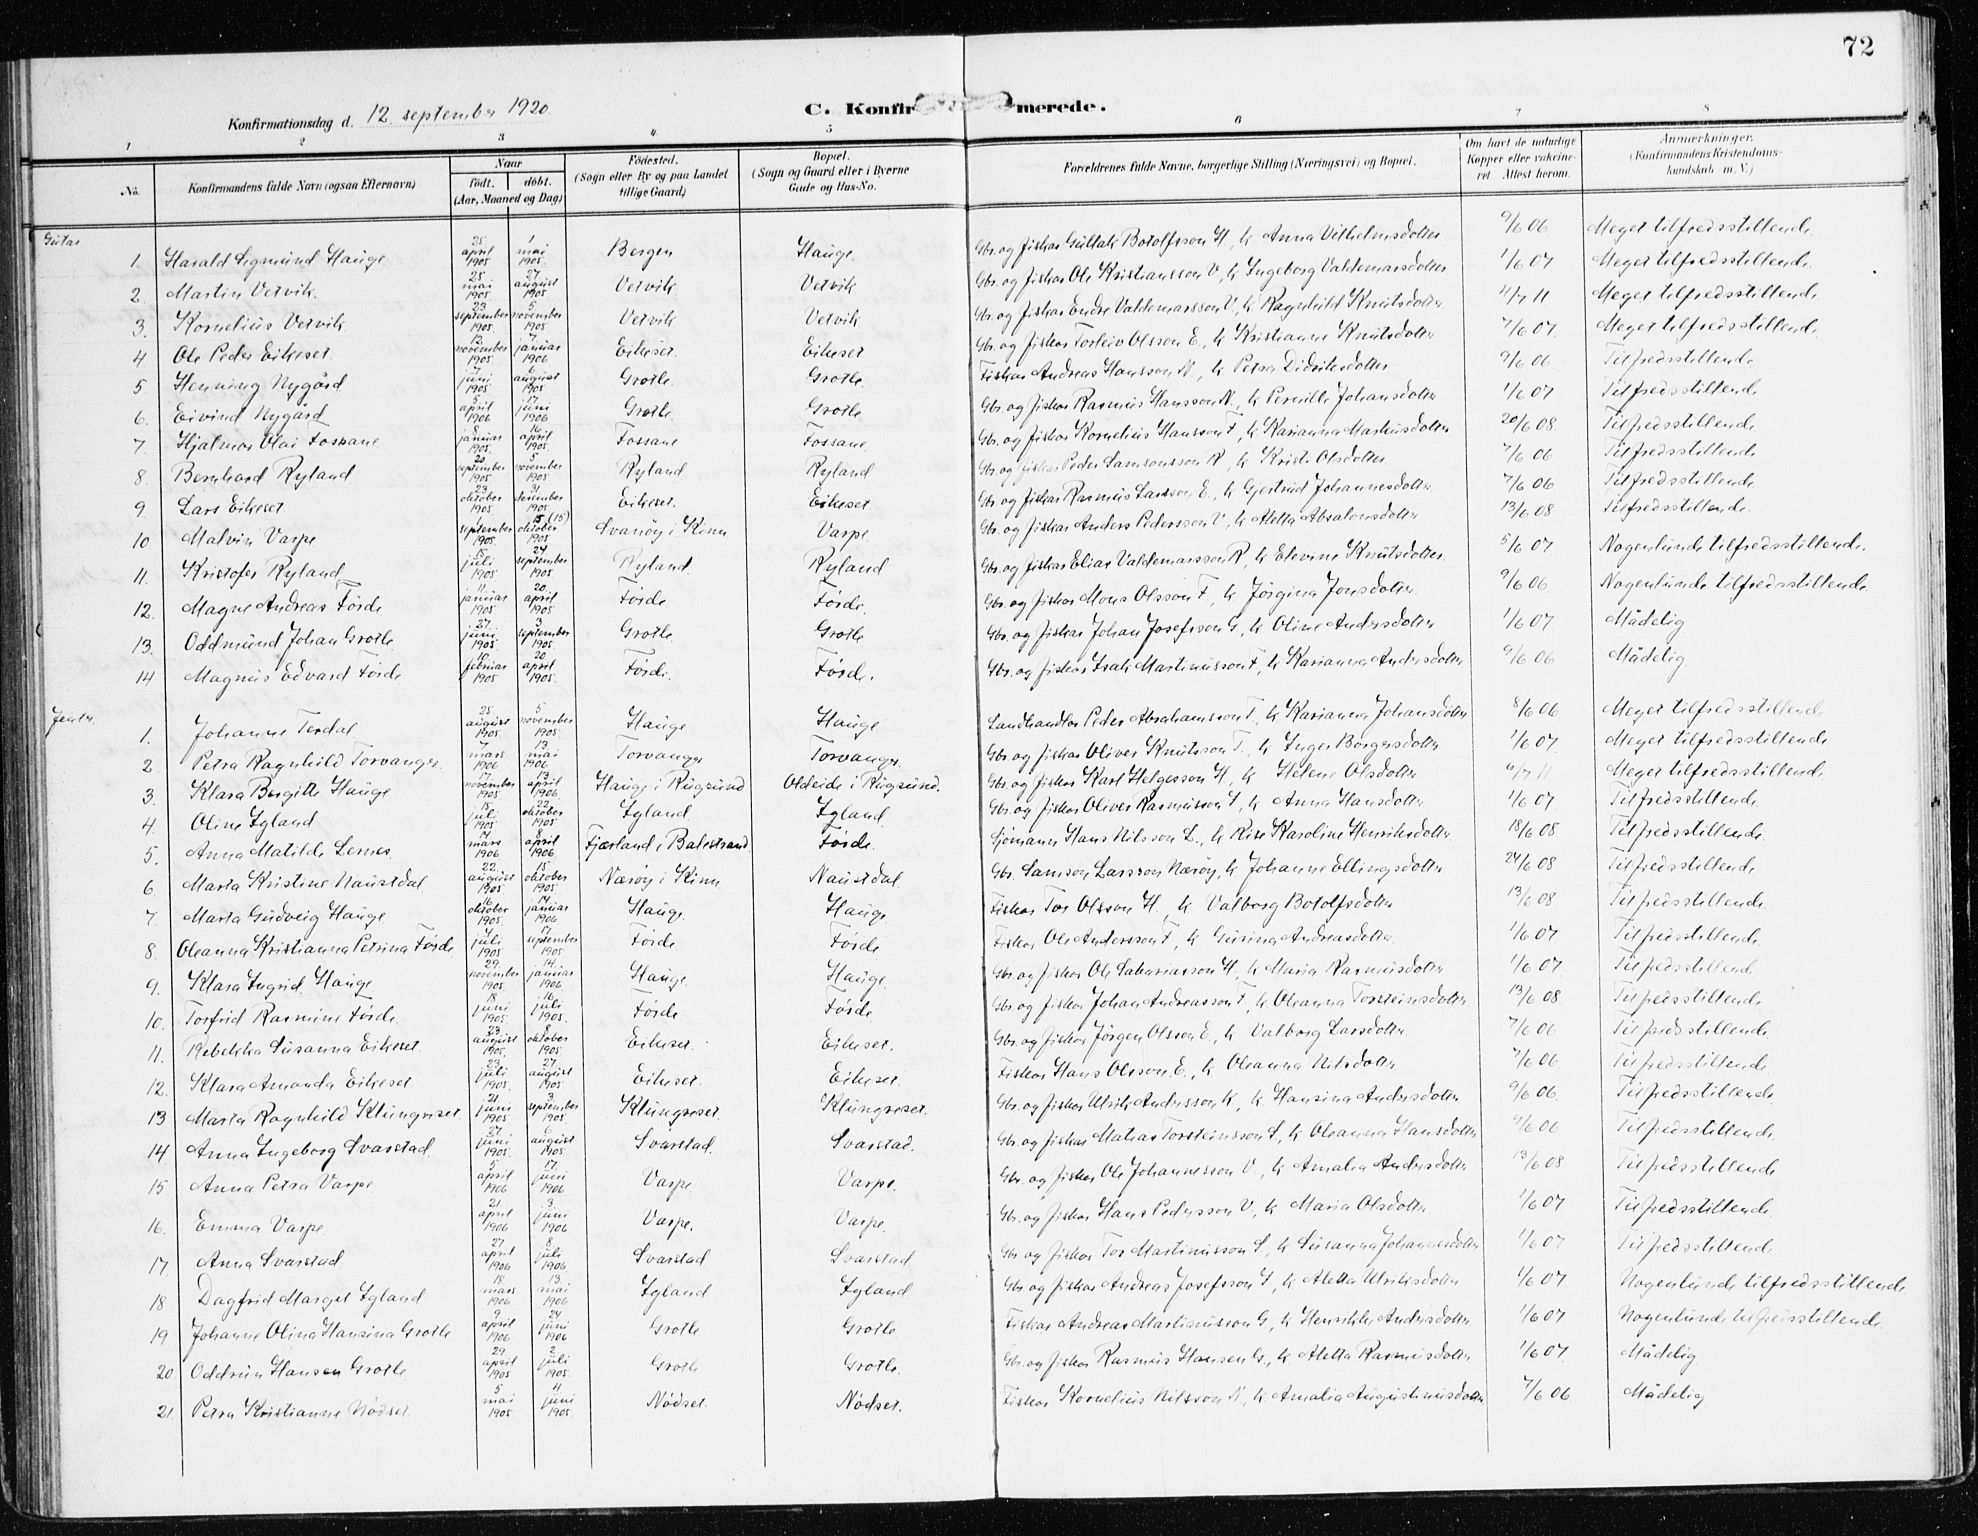 72
Konfirmationsdag d. 12. september 1920.
C. Konfir merede.
1 2 3 4. 5 6 7 8
No. Konfirmandens fulde Navn (ogsaa Efternavn) Naar født. døbt. (Aar, Maaned og Dag) Fødested. (Sogn eller By og paa Landet tillige Gaard) Bopæl. (Sogn og Gaard eller i Byerne Gade og Hus-No. Forældrenes fulde Navne, borgerlige Stilling (Næringsvei) og Bopæl. Om havt de naturlige Kopper eller vakcineret. Attest herom. Anmærkninger. (Konfirmandens Kristendomskundskab m. V.)
Gutar
1. Harald Sigmund Hauge 25 april 1905 1 mai 1905. Bergen Hauge. Gbr. og fiskar Guttak Botolfsson H., k Anna Vilhelmsdotter 9/6 06 Meget tilfredsstillende.
2. Martin Vetvik. 25 mai 1905 27 august 1905 Vetvik Vetvik Gbr. og fiskar Ole Kristiansson V., k Ingeborg Valdemarsdotter 1/6 07 Meget tilfredsstillende.
3. Kornelius Vetvik 23 september 1905 5 november 1905 Vetvik Vetvik Gbr. og fiskar Endre Valdemarsson V., k Ragnhild Knutsdotter 4/7 11 Meget tilfredsstillende
4 Ole Peder Eikeset 12. november 1905 7. januar 1906 Eikeset. Eikeset. Gbr. og fiskar Torleiv Olsson E., k Kristianne Knutsdotter 7/6 07. Meget tilfredsstillende.
5 Henning Nygård 7 juni 1905 6 august 1905 Grotle. Grotle. Fiskar Andreas Hansson N., k Petra Didriksdotter 9/6 06. Tilfredsstillende
6. Eivind Nygård 5. april 1906 17. juni 1906 Grotle. Grotle. Gbr. og fiskar Rasmus Hansson N., k Pernille Johansdotter 1/6 07 Tilfredsstillende
7 Hjalmar Olai Fossane 8 januar 1905 16 april 1905 Fossane Fossane. Gbr. og fiskar Kornelius Hansson F., k Karianna Markusdotter 20/6 08. Tilfredsstillende.
8 Bernhard Ryland 20 september 1905 5 november 1905 Ryland Ryland Gbr. og fiskar Peder Samsonsson R., k Kristi Olsdotter 7/6 06 Tilfredsstillende.
9 Lars Eikeset 23 oktober 1905 31 desember 1905 Eikeset. Eikeset. Gbr. og fiskar Rasmus Larsson E., k Gjertrud Johannesdotter 7/6 06 Tilfredsstillende.
10 Malvin Varpe 1 september 1905. 15 (15) oktober 1905 Svanøy i Kinn Varpe. Gbr. og fiskar Anders Pedersson V., k Aletta Absalonsdotter 13/6 08 Tilfredsstillende.
11. Kristofer Ryland 15. juli 1905 24 september 1905 Ryland. Ryland Gbr. og fiskar Elias Valdemarsson R., k Elevine Knutsdotter 5/6 07 Nogenlunde tilfredsstillende.
12. Magne Andreas Førde 11. januar 1905 20. april 1905 Førde Førde. Gbr. og fiskar Mons Olsson F., k Jørgina Jonsdotter. 9/6 06 Nogenlunde tilfredsstillende.
13. Oddmund Johan Grotle 27 juni 1905 3 september 1905. Grotle Grotle. Gbr. og fiskar Johan Josefsson G., k Oline Andersdotter 1/6 07 Mådelig
14 Magnus Edvard Førde 10. februar 1905 20 april 1905. Førde. Førde. Gbr. og fiskar Isak Martinusson F., k Karianna Andersdotter 9/6 06 Mådelig
Jentr.
1. Johanne Terdal 25. august 1905 5 november 1905. Hauge Hauge Landhandlar Peder Abrahamsson T., k Karianna Johansdotter 8/6 06 Meget tilfredsstillende
2 Petra Ragnhild Torvanger. 7 mars 1906 13. mai 1906 Torvanger Torvanger. Gbr. og fiskar Oliver Knutsson T., k Inger Børgersdotter 1/6 07. Meget tilfredsstillende
3. Klara Bergitte Hauge 17 november 1905 13. april 1906 Hauge i Rugsund Oldeide i Rugsund. Gbr. og fiskar Karl Helgesson H., k Helene Olsdotter 6/7 11 Meget tilfredsstillende
4. Oline Igland 15. juli 1905 22 oktober 1905 Igland. Igland. Gbr. og fiskar Oliver Rasmusson I., k Anna Hansdotter 1/6 07. Tilfredsstillende.
5. Anna Matilde Lernes. 14 mars 1906 8 april 1906. Fjærland i Balestrand. Førde. Sjømann Hans Nilsson L., k Rise Karoline Henriksdotter 18/6 08 Tilfredsstillende.
6 Marta Kristine Naustdal 22. august 1905 15. oktober 1905 Nærøy i Kinn Naustdal Gbr. Samson Larsson Nærøy, k Johanne Ellingsdotter 24/6 08 Tilfredsstillende.
7. Marta Gudveig Hauge 16 oktober 1905. 14 januar 1906 Hauge. Hauge. Fiskar Tor Olsson H., k Valborg Botolfsdotter 13/6 08. Tilfredsstillende.
8. Oleanna Kristianna Petrina Førde 4 juli 1905 17. september 1905. Førde Førde. Fiskar Ole Andersson F., k Gurina Andreasdotter. 1/6 07 Tilfredsstillend.
9. Klara Ingrid Hauge 29. november 1905 14. januar 1906 Hauge. Hauge. Gbr. og fiskar Ole Sakariasson H., k Maria Rasmusdotter 1/6 07 Tilfredsstillend
10. Torfrid Rasmine Førde. 18 juni 1905 16 juli 1905. Førde Førde. Gbr. og fiskar Johan Andreasson F., k Oleanna Torsteinsdotter 13/6 08 Tilfredsstillende.
11. Rebekka Susanna Eikeset. 23. august 1905. 8 oktober 1905 Eikeset. Eikeset. Gbr. og fiskar Jørgen Olsson E., k Valborg Larsdotter. 7/6 06 Tilfredsstillende.
12. Klara Amanda Eikeset 23. juli 1905. 27. august 1905. Eikeset. Eikeset. Fiskar Hans Olsson E., k Oleanna Nilsdotter 7/6 06 Tilfredsstillende.
13 Marta Ragnhild Klungreset. 21. juni 1905 3. september 1905. Klungreset. Klungreset. Gbr. og fiskar Ulrik Andersson K., k Hansina Andersdotter 9/6 06. Tilfredsstillende.
14. Anna Ingeborg Svarstad. 27. juni 1905. 6 august 1905 Svarstad. Svarstad. Gbr. og fiskar Matias Torsteinsson S., k Oleanna Hansdotter 9/6 06 Tilfredsstillende.
15. Anna Petra Varpe. 5 april 1906 17. juni 1906 Varpe. Varpe. Gbr. og fiskar Ole Johannesson V., k Amalia Andersdotter 13/6 08 Tilfredsstillende
16. Emma Varpe. 21. april 1906 3. juni 1906 Varpe. Varpe. Gbr. og fiskar Hans Pedersson V., k Maria Olsdotter. 1/6 07 Tilfredsstillende.
17 Anna Svarstad 27. april 1906 8. juli 1906 Svarstad Svarstad Gbr. og fiskar Tor Martinusson S., k Susanna Johannesdotter 1/6 07 Tilfredsstillende
18 Dagfrid Marget Igland 18. mars 1906 13. mai 1906 Igland Igland Gbr. og fiskar Andreas Josefsson I., k Aletta Ulriksdotter 1/6 07 Nogenlunde tilfredsstillende
19 Johanne Olina Hansina Grotle 9 april 1906 24 juni 1906 Grotle. Grotle. Fiskar Andreas Martinusson G., k Henrikke Andersdotter 1/6 07 Nogenlunde tilfredsstillende.
20. Oddrun Hansen Grotle 29. april 1905 2. juli 1905. Grotle Grotle. Gbr. og fiskar Rasmus Hansen G., k Aletta Rasmusdotter 1/6 07. Mådelig
21. Petra Kristianne Nødset. 5 mai 1905. 4. juni 1905. Nødset Nødset. Fiskar Kornelius Nilsson N., k Amalia Augustinusdotter 7/6 06 Mådelig